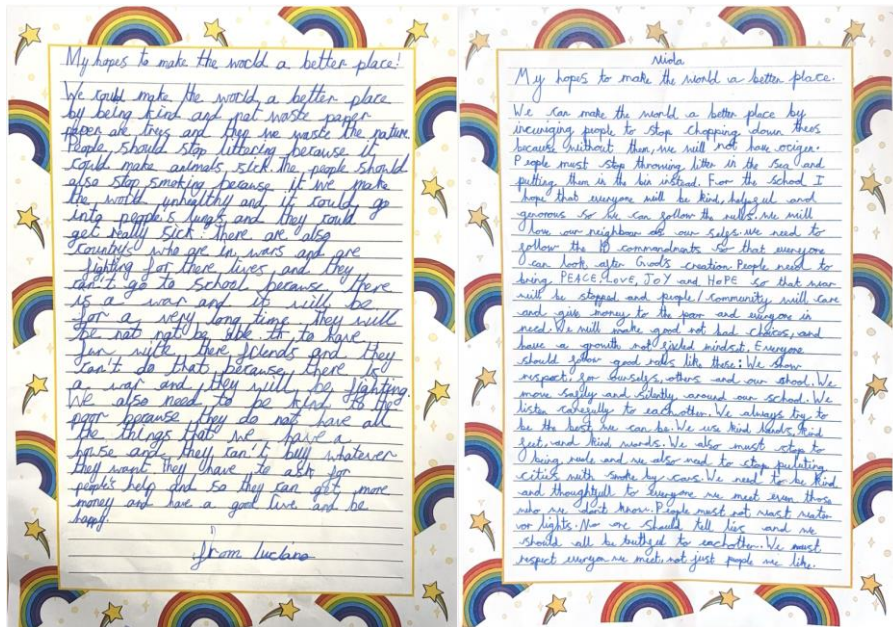 My hopes to make the world a better place!
We could make the world a better place
by being kind and not waste paper
paper are trees and then we waste the nature.
People should stop littering because it
could make animals sick. the people should
also stop smoking because it we make
the world unhealthy and it could go
into people's lungs and they could
get really sick. there are also
countrys who are in wars and are
fighting for there lives and they
can't go to school because there
is a war and it will be
for a very long time. they will
be not not be able th to have
fun with there friends and they
can't do that because there is
a war and they will be fighting.
We also need to be kind to the
poor because they do not have all
the things that we have a
house and they can't buy whatever
they want they have to ask for
people's help and so they can get more
money and have a good live and be
happy.
from Luciano
Miola
My hopes to make the world a better place.
We can make the world a better place by
people to stop chopping down
because without them, we will not have
People must stop throwing litter in the sea and
putting them in the bin instead. For the school I
hope that everyone will be kind, helpful and
so we can follow the rules. we will
love our neighbour as our selfs. we need to
follow the 10 commandments so that everyone
can look after God's creation People need to
bring PEACE, LOVE, JOY and HOPE so that war
will be stopped and people/community will care
and give money to the poor and everyone in
need. We will make good not bad choices, and
have a growth not mindset. Everyone
should follow good rules like these: We show
respect for ourselves, others and our shool. We
move safely and silently around our school. We
listen carefully to eachother. We always try to
be the best we can be. We use kind hands, kind
feet, and kind words. We also must stop to
being rude and we also need to stop
cities with smoke by cars. We need to be kind
and to everyone we meet even those
who we dont know. People must not wast water
or lights. No one should tell lies and we
should all be to eachother. We must
respect everyon we meet, not just people we like.